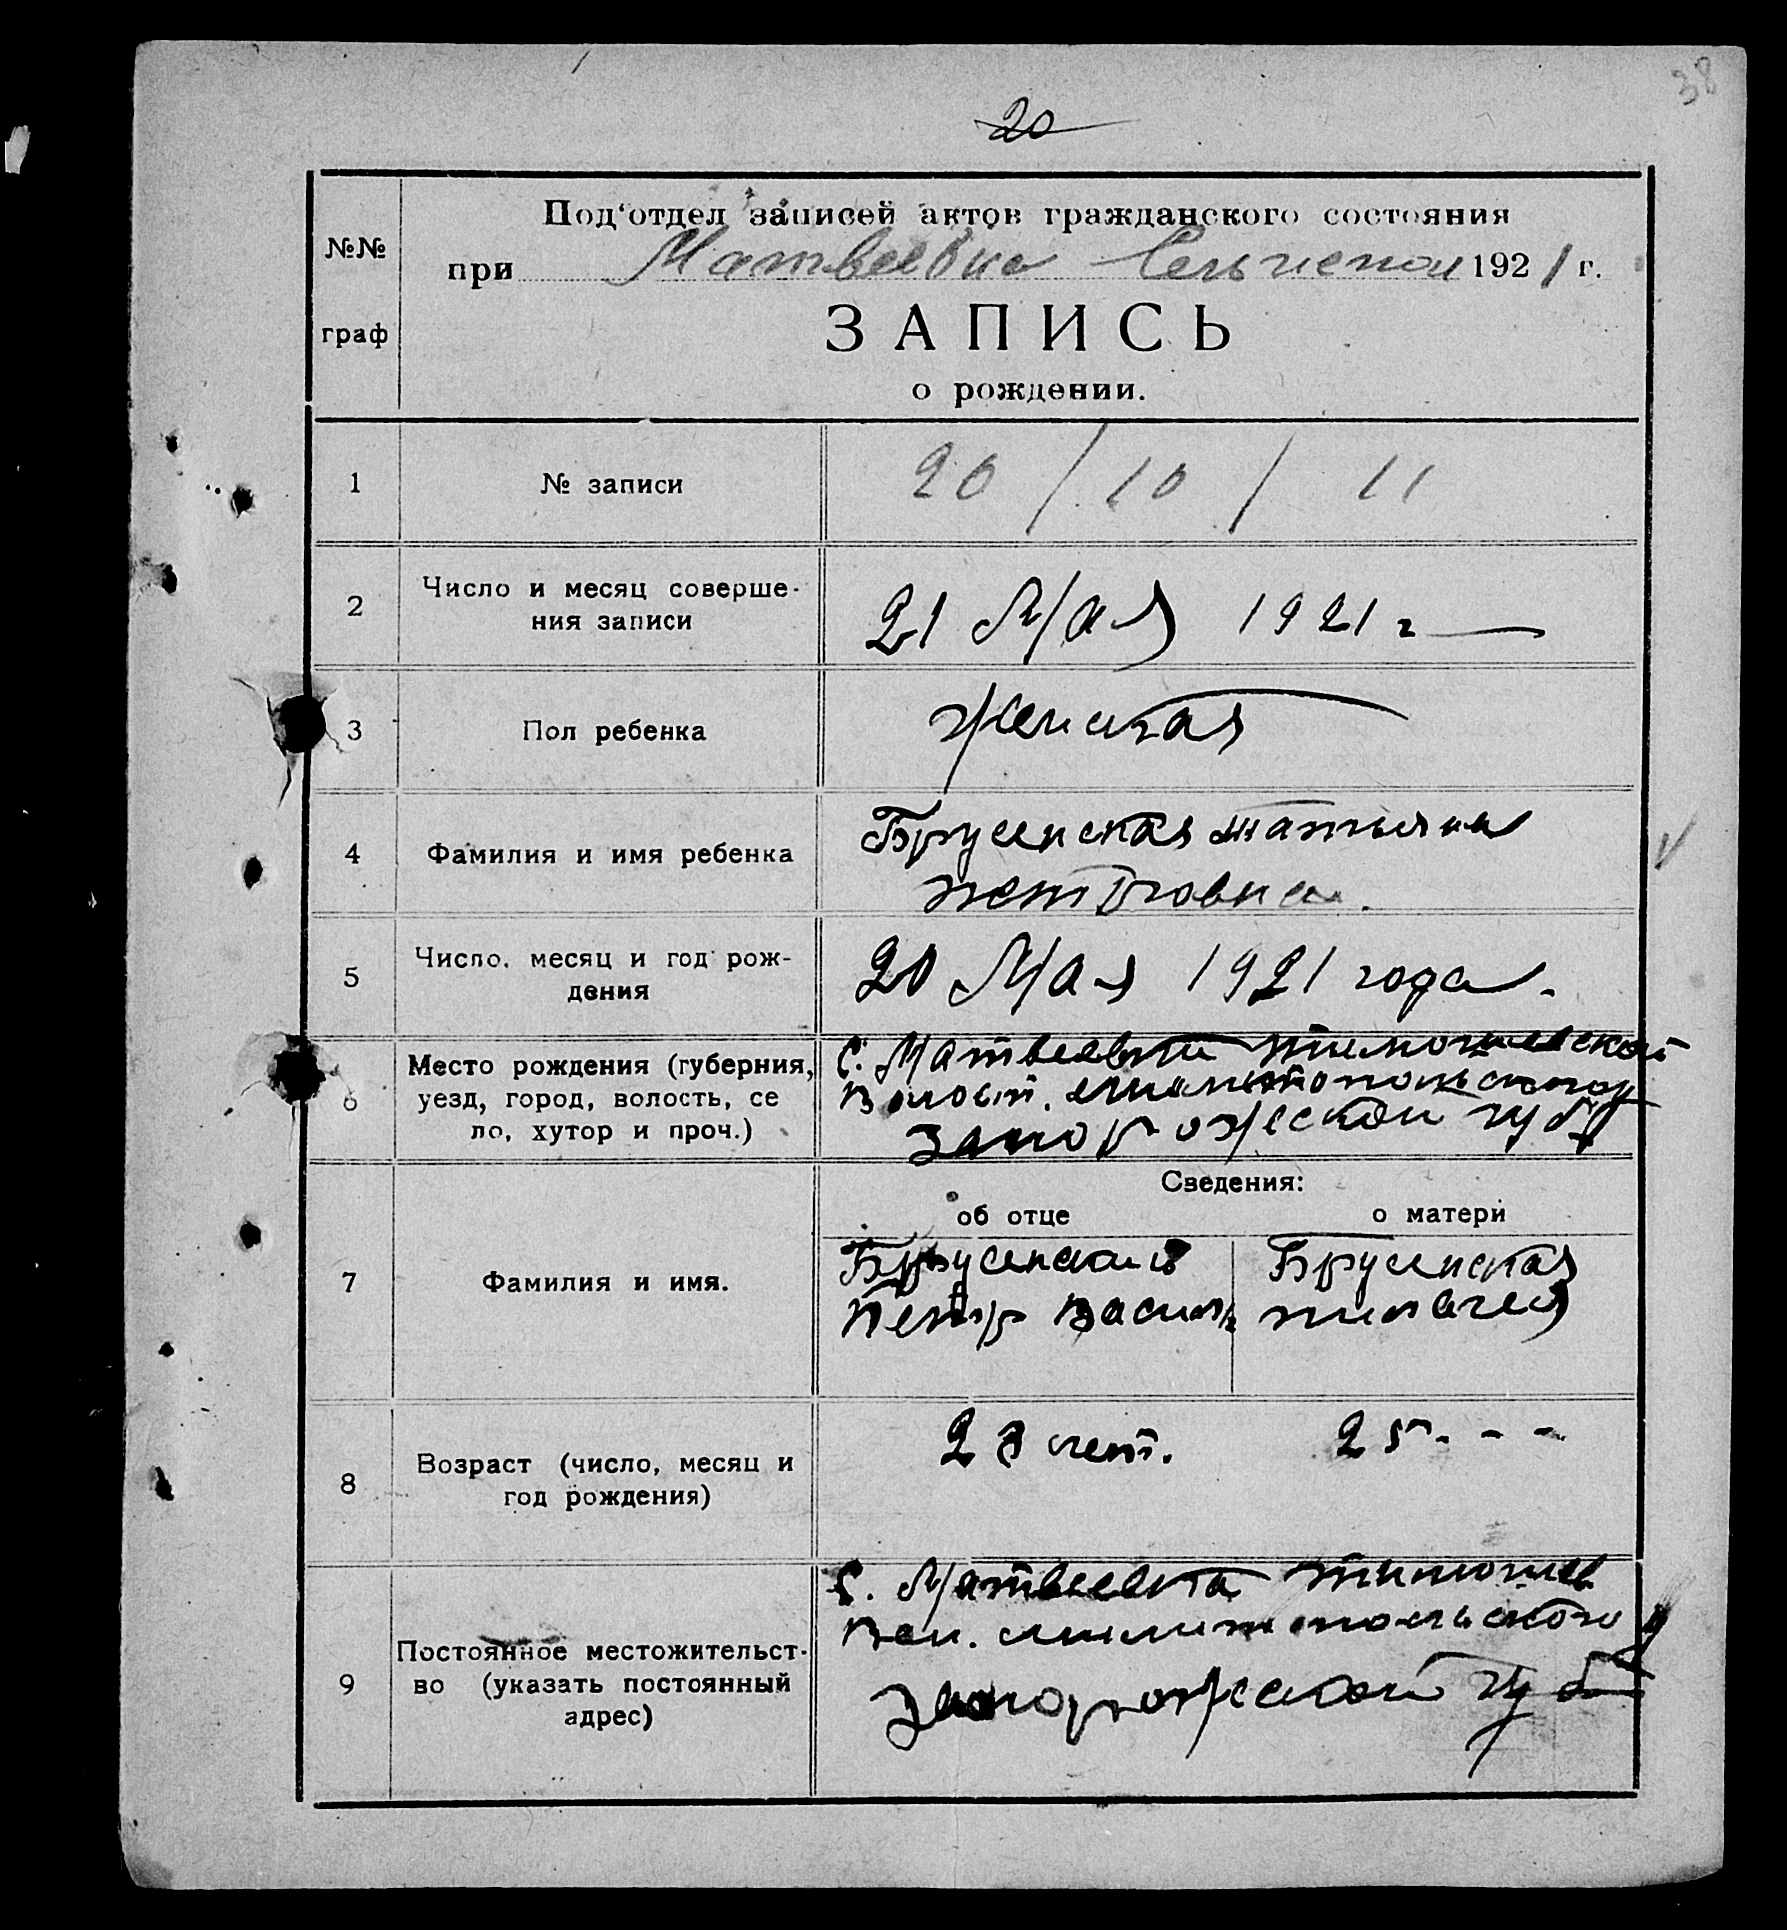 38
20
Под‘отдел записей актов гражданского состояния
№№
при Матвеевке 1921 г.
граф
ЗАПИСЬ
о рождении.
1 № записи 20 / 10 / 11
2 Число и месяц соверше-
ния записи 21 Мая 1921 г
3 Пол ребенка Женская
4 Фамилия и имя ребенка Брусенская татьяна
петровна.
5 Число, месяц и год рож-
дения 20 Мая 1921 года.
6 Место рождения (губерния,
уезд, город, волость, се
ло, хутор и проч.)
С. Матвеевки тимошевской
Волост. мелитопольского у
Запорожеской губ
Сведения:
об отце о матери
7 Фамилия и имя.
Брусенский Брусенская
Петр Василь пилагея
8 Возраст (число, месяц и
год рождения)
28 лет. 25 - - -
9 Постоянное местожительст-
во (указать постоянный
адрес)
С. Матвеевка тимошев
Вол. мелитопольского у
Запорожеской губ